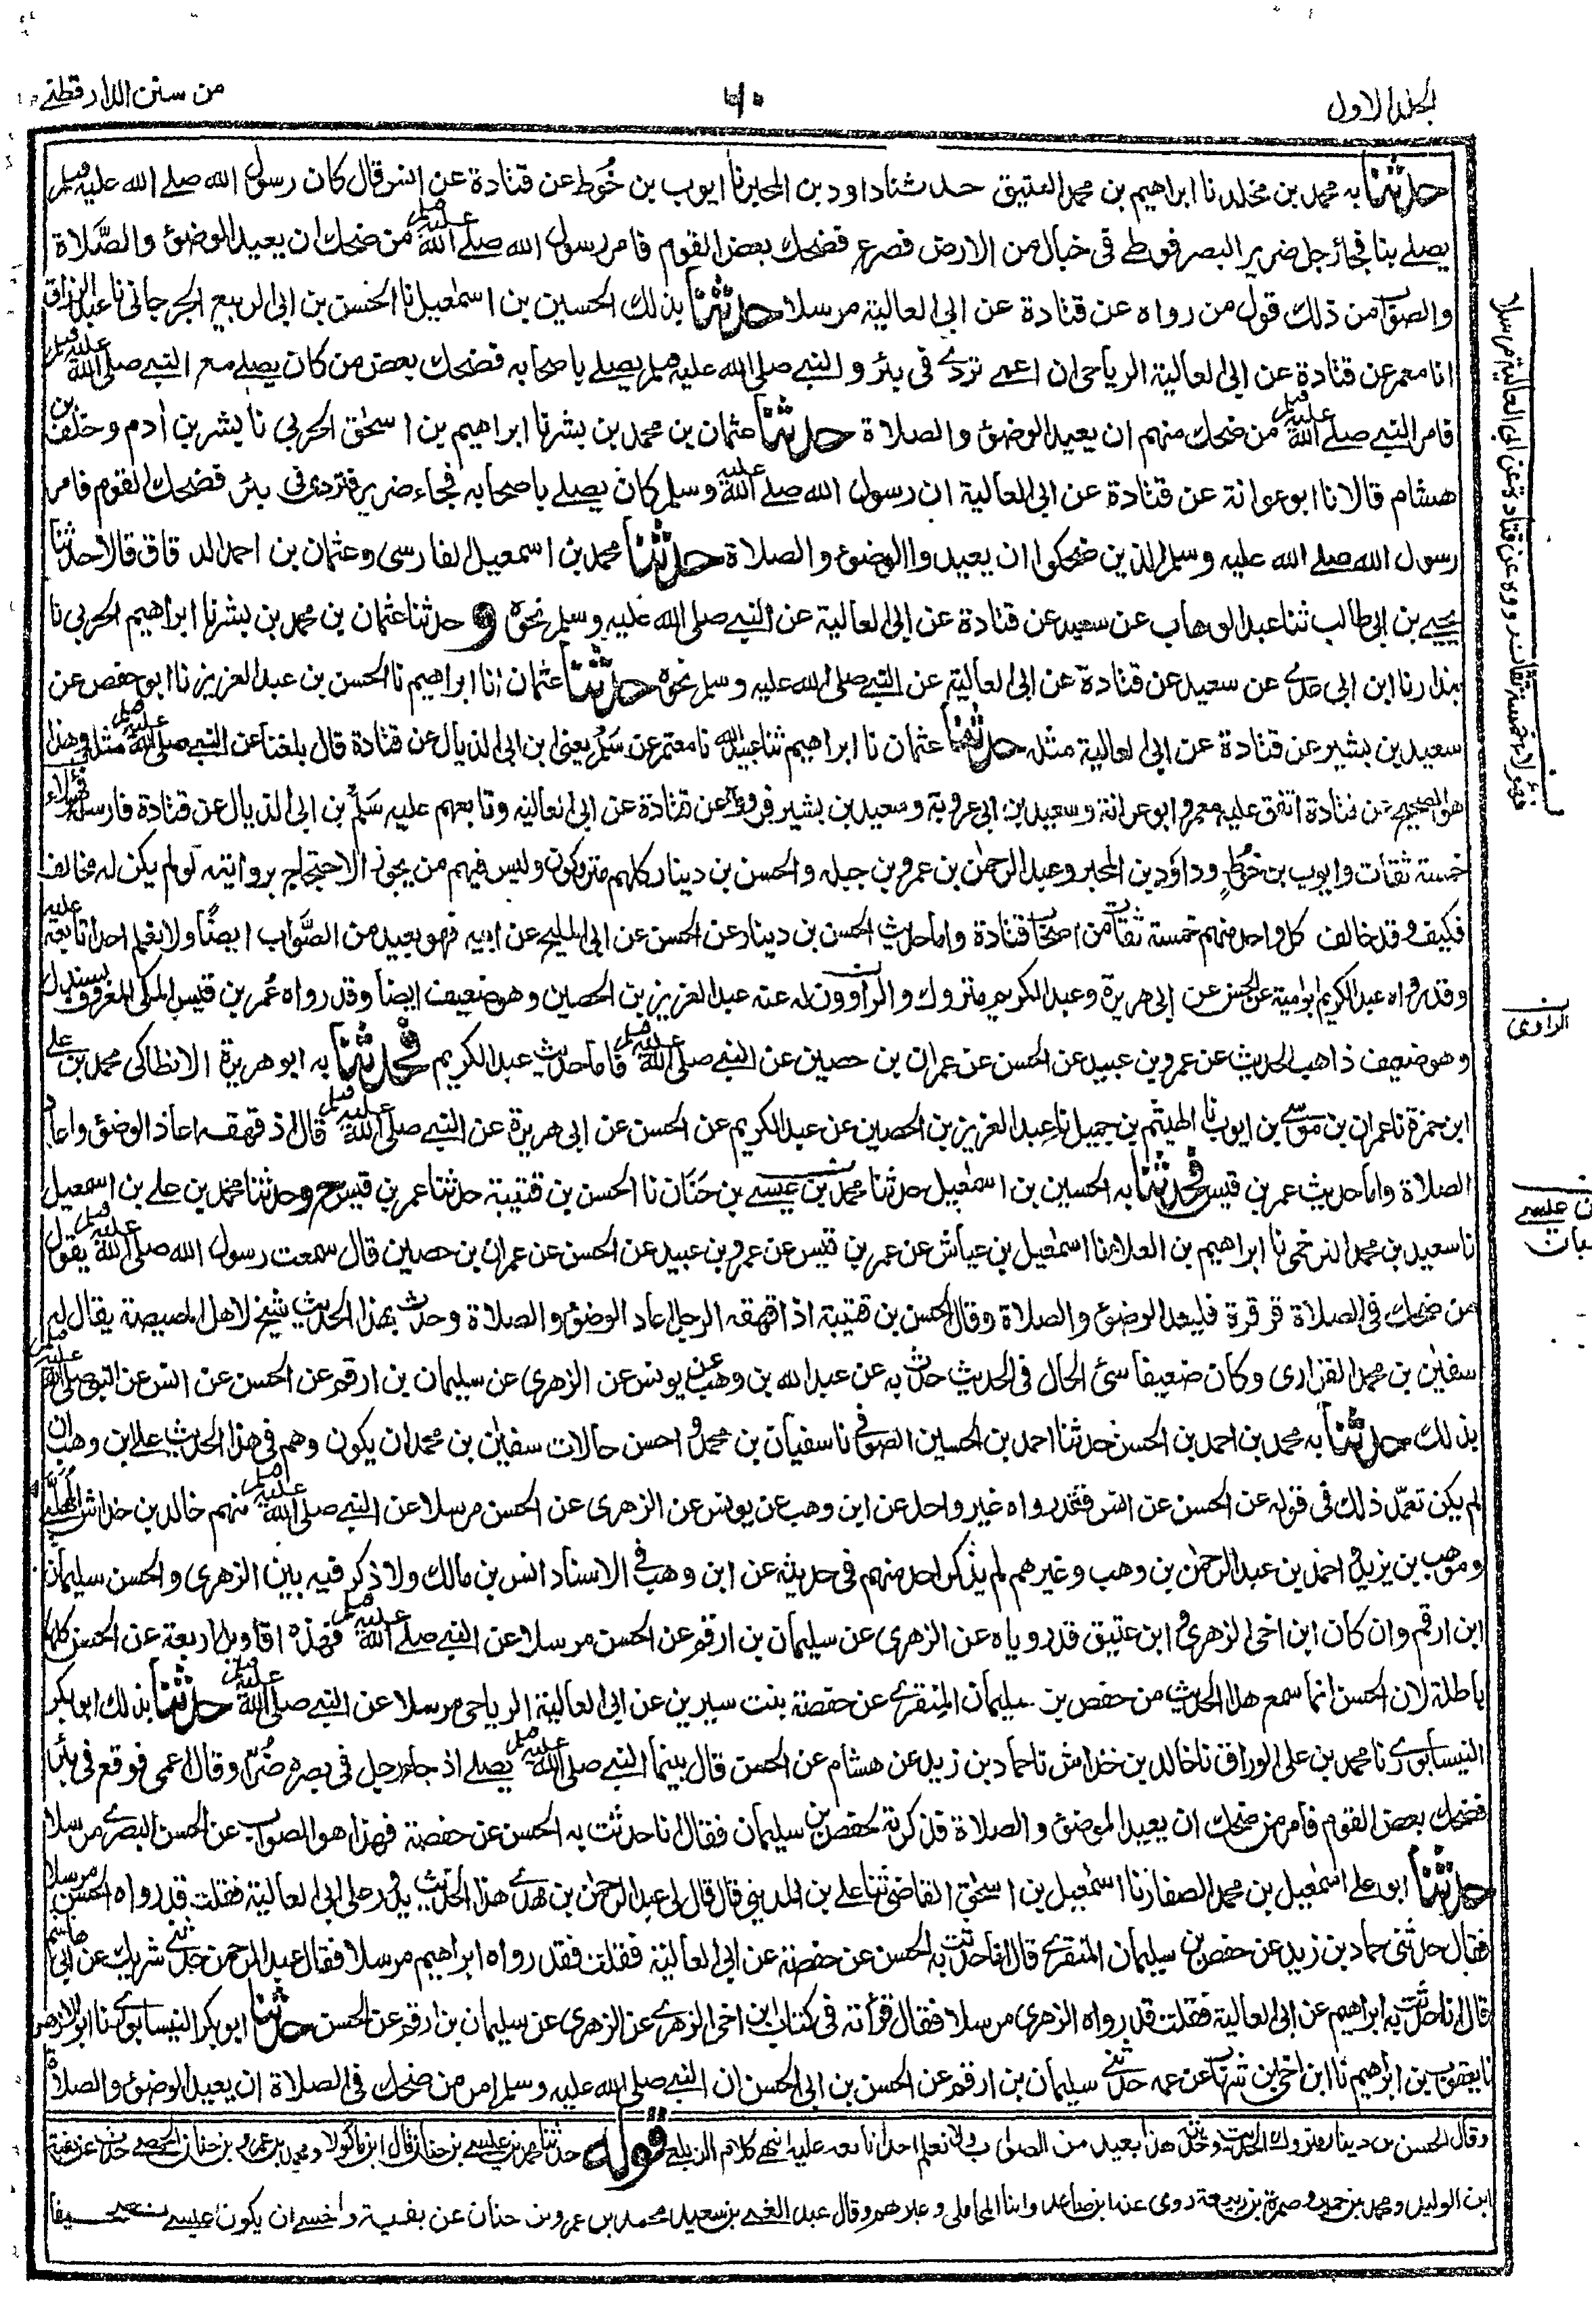 الجلد الاول
٦٠
من سنن الدارقطنے
حدثنا به محمد بن مخلد نا ابراهيم بن محمد العتيق حدثنا داود بن المحبر نا ايوب بن خُوط عن قتادة عن انس قال كان رسول الله صلے الله عليه وسلم
يصلے بنا فجاء رجل ضرير البصر فوطے فى خبال من الارض فصرع فضحك بعض القوم فامر رسول الله صلے الله عليه وسلم من ضحك ان يعيد الوضوء والصَّلاة
والصواب من ذلك قول من رواه عن قتادة عن ابى العالية مرسلا حدثنا بذلك الحسين بن اسمٰعيل نا الحسن بن ابى الربيع الجرجانى نا عبد الرزاق
انا معمر عن قتادة عن ابى العالية الرياحى ان اعمے تردے فى بئر والنبے صلى الله عليه وسلم يصلے باصحابه فضحك بعض من كان يصلے مع النبے صلى الله عليه وسلم
فامر النبے صلے الله عليه وسلم من ضحك منهم ان يعيد الوضوء والصلاة حدثنا عثمان بن محمد بن بشر نا ابراهيم بن اسحٰق الحربي نا بشر بن اٰدم وخلف بن
هشام قالا نا ابو عوانة عن قتادة عن ابى العالية ان رسول الله صلے الله عليه وسلم كان يصلے باصحابه فجاء ضرير فتردى فى بئر فضحك القوم فامر
رسول الله صلے الله عليه وسلم الذين ضحكوا ان يعيدوا الوضوء والصلاة حدثنا محمد بن اسمعيل الفارسى وعثمان بن احمد الدقاق قالا حدثنا
يحيے بن ابى طالب ثنا عبد الوهاب عن سعيد عن قتادة عن ابى العالية عن النبے صلى الله عليه وسلم نحوه و حدثنا عثمان بن محمد بن بشر نا ابراهيم الحربى نا
بندار نا ابن ابى عدے عن سعيد عن قتادة عن ابى العالية عن النبے صلى الله عليه وسلم نحوه حدثنا عثمان انا ابراهيم نا الحسن بن عبد العزيز نا ابو حفص عن
سعيد بن بشير عن قتادة عن ابى العالية مثله حدثنا عثمان نا ابراهيم ثنا عبيد الله نا معتمر عن سَلْم يعنى ابن ابى الذيال عن قتادة قال بلغنا عن النبے صلى الله عليه وسلم مثله وهذا
هو الصحيح عن قتادة اتفق عليه معمر وابو عوانة وسعيد بن ابى عروبة وسعيد بن بشير فرووه عن قتادة عن ابى العالية وتابعهم عليه سَلْم بن ابى الذيال عن قتادة فارسله فهؤلاء
خمسة ثقات وايوب بن خوط وداؤد بن المحبر وعبد الرحمٰن بن عمرو بن جبله والحسن بن دينار كلهم متروكون وليس فيهم من يجوز الاحتجاج بروايته لو لم يكن له مخالف
فكيف وقد خالف كل واحد منهم خمسة ثقات من اصحاب قتادة واما حديث الحسن بن دينار عن الحسن عن ابى المليح عن ابيه فهو بعيد من الصَّواب ايضًا ولا يعلم احدا تابعه عليه
وقد رواه عبد الكريم ابو امية عن الحسن عن ابى هريرة وعبد الكريم متروك والراوون له عنه عبد العزيز بن الحصين وهو ضعيف ايضا وقد رواه عُمر بن قيس المكى المعروف بسندل
وهو ضعيف ذاهب الحديث عن عمرو بن عبيد عن الحسن عن عمران بن حصين عن النبے صلى الله عليه وسلم فاما حديث عبد الكريم فحدثنا به ابو هريرة الانطاكى محمد بن علے
ابن حمزة نا عمران بن موسے بن ايوب نا الهيثم بن جميل نا عبد العزيز بن الحصين عن عبد الكريم عن الحسن عن ابى هريرة عن النبے صلى الله عليه وسلم قال اذ قهقه اعاد الوضوء واعاد
الصلاة واما حديث عمر بن قيس فحدثنا به الحسين بن اسمٰعيل حدثنا محمد بن عيسے بن حَنَان نا الحسن بن قتيبة حدثنا عمر بن قيس ح وحدثنا محمد بن علے بن اسمعيل
نا سعيد بن محمد الترخمى نا ابراهيم بن العلاء نا اسمٰعيل بن عياش عن عمر بن قيس عن عمرو بن عبيد عن الحسن عن عمران بن حصين قال سمعت رسول الله صلى الله عليه وسلم يقول
من ضحك فى الصلاة قرقرة فليعد الوضوء والصلاة وقال الحسن بن قتيبة اذا قهقه الرجل اعاد الوضوء والصلاة وحدث بهذا الحديث شيخ لاهل المصيصة يقال له
سفيٰن بن محمد الفزارى وكان ضعيفا سئ الحال فى الحديث حدث به عن عبد الله بن وهب عن يونس عن الزهرى عن سليمان بن ارقم عن الحسن عن انس عن النبى صلى الله عليه وسلم
بذلك حدثنا به محمد بن احمد بن الحسن حدثنا احمد بن الحسين الصوفى نا سفيان بن محمد و احسن حالات سفيٰن بن محمد ان يكون وهم فى هذا الحديث على ابن وهب ان
لم يكن تعمّد ذلك فى قوله عن الحسن عن انس فقد رواه غير واحد عن ابن وهب عن يونس عن الزهرى عن الحسن مرسلا عن النبے صلى الله عليه وسلم منهم خالد بن خداش المهلبے
وموهب بن يزيد و احمد بن عبد الرحمٰن بن وهب وغيرهم لم يذكر احد منهم فى حديثه عن ابن وهب فى الاسناد انس بن مالك ولا ذكر فيه بين الزهرى والحسن سليمان
ابن ارقم وان كان ابن اخى الزهرى و ابن عتيق قد روياه عن الزهرى عن سليمان بن ارقم عن الحسن مرسلا عن النبے صلے الله عليه وسلم فهذه اقاويل اربعة عن الحسن كلها
باطلة لان الحسن انما سمع هذا الحديث من حفص بن سليمان المنقرے عن حفصة بنت سيرين عن ابى العالية الرياحى مرسلا عن النبے صلى الله عليه وسلم حدثنا بذلك ابو بكر
النيسابورے نا محمد بن على الوراق نا خالد بن خداش نا حماد بن زيد عن هشام عن الحسن قال بينما النبے صلى الله عليه وسلم يصلے اذ جاء رجل فى بصره ضُرٌّ او قال اعمى فوقع فى بئر
فضحك بعض القوم فامر من ضحك ان يعيد الوضوء والصلاة فذكرته لحفص بن سليمان فقال انا حدثت به الحسن عن حفصة فهذا هو الصواب عن الحسن البصرے مرسلا
حدثنا ابو علے اسمٰعيل بن محمد الصفار نا اسمٰعيل بن اسحٰق القاضى ثنا علے بن المدينى قال قال لى عبد الرحمٰن بن مهدے هذا الحديث يدور على ابى العالية فقلت قد رواه الحسن مرسلا
فقال حدثنى حماد بن زيد عن حفص بن سليمان المنقرے قال انا حدثت به الحسن عن حفصة عن ابى العالية فقلت فقد رواه ابراهيم مرسلا فقال عبد الرحمٰن حدثنے شريك عن ابى هاشم
قال انا حدثت به ابراهيم عن ابى العالية فقلت قد رواه الزهرى مرسلا فقال قرأته فى كتاب ابن اخى الزهرے عن الزهرى عن سليمان بن ارقم عن الحسن حدثنا ابو بكر النيسابورے نا ابو الازهر
نا يعقوب بن ابراهيم نا ابن اخى بن شهاب عن عمه حدثنے سليمان بن ارقم عن الحسن بن ابى الحسن ان النبے صلى الله عليه وسلم امر من ضحك فى الصلاة ان يعيد الوضوء والصلاة
وقال الحسن بن دينار متروك الحديث وحديثه هذا بعيد من الصواب ولا نعلم احدا تابعه عليه انتهے كلام الزيلعے قوله حدثنا محمد بن عيسے بن حنان قال ابن ماكولا ومحمد بن عمرو بن حنان الحمصے حدث عن بقية
ابن الوليد ومحمد بن حمير وضمرة بن ربيعة روى عنه ابن صاعد وابنا المحاملى وغيرهم وقال عبد الغنے بن سعيد محمد بن عمرو بن حنان عن بقية واخشے ان يكون عيسے تصحيفا
فهؤلاء خمسة ثقات رووه عن قتادة عن ابى العالية مرسلا
الراوى
بن عيسے